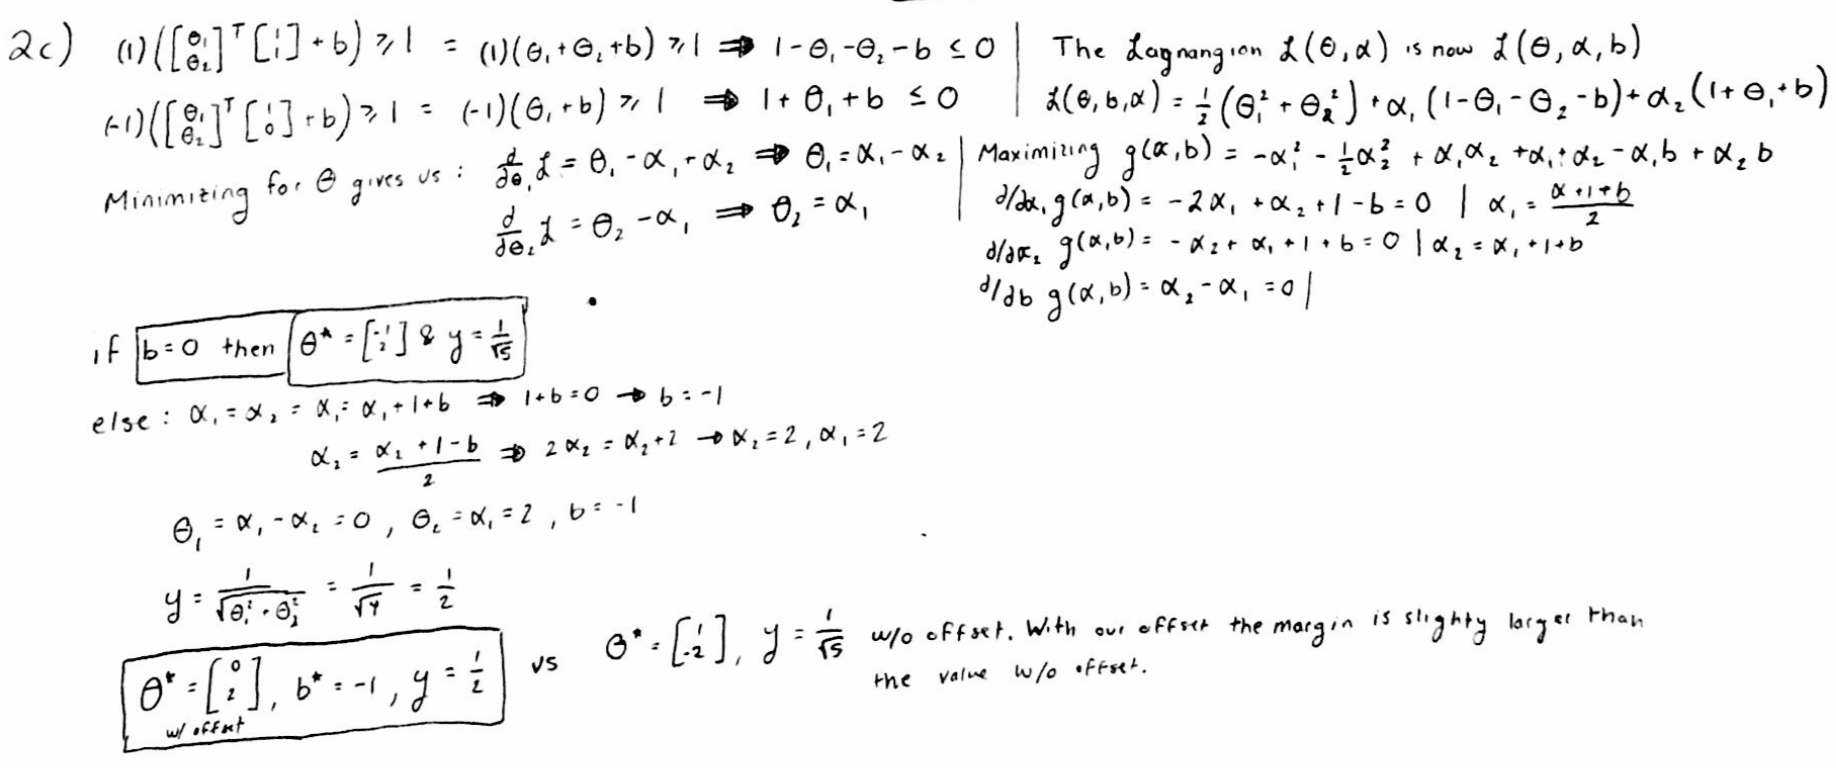 2c) (1)([θ₁ θ₂]ᵀ [1 1] + b) ⩾ 1 = (1)(θ₁+θ₂+b) ⩾ 1 ⇒ 1-θ₁-θ₂-b ≤ 0
(-1)([θ₁ θ₂]ᵀ [1 0] + b) ⩾ 1 = (-1)(θ₁+b) ⩾ 1 ⇒ 1+θ₁+b ≤ 0
Minimizing for θ gives us : d/dθ₁ L = θ₁ - α₁ + α₂ ⇒ θ₁ = α₁ - α₂
d/dθ₂ L = θ₂ - α₁ ⇒ θ₂ = α₁
The Lagrangian L(θ,α) is now L(θ,α,b)
L(θ,b,α) = 1/2 (θ₁² + θ₂²) + α₁(1-θ₁-θ₂-b) + α₂(1+θ₁+b)
Maximizing g(α,b) = -α₁² - 1/2 α₂² + α₁α₂ + α₁ + α₂ - α₁b + α₂b
∂/∂α₁ g(α,b) = -2α₁ + α₂ + 1 - b = 0 | α₁ = (α+1+b)/2
∂/∂α₂ g(α,b) = -α₂ + α₁ + 1 + b = 0 | α₂ = α₁+1+b
∂/∂b g(α,b) = α₂ - α₁ = 0 |
if b=0 then θ* = [-1 2] & y = 1/√5
else : α₁ = α₂ = α₁ = α₁+1+b ⇒ 1+b=0 → b=-1
α₂ = (α₂+1-b)/2 ⇒ 2α₂ = α₂+2 → α₂=2, α₁=2
θ₁ = α₁-α₂ = 0, θ₂ = α₁ = 2, b=-1
y = 1/√(θ₁²+θ₂²) = 1/√4 = 1/2
θ* = [0 2], b* = -1, y = 1/2
w/ offset
vs θ* = [1 -2], y = 1/√5 w/o offset. With our offset the margin is slighty larger than
the value w/o offset.